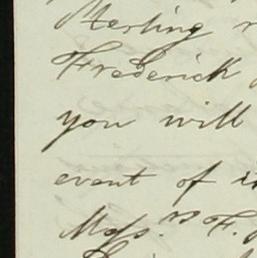 Sterling
Frederick
you will
event of
Mess.rs F.